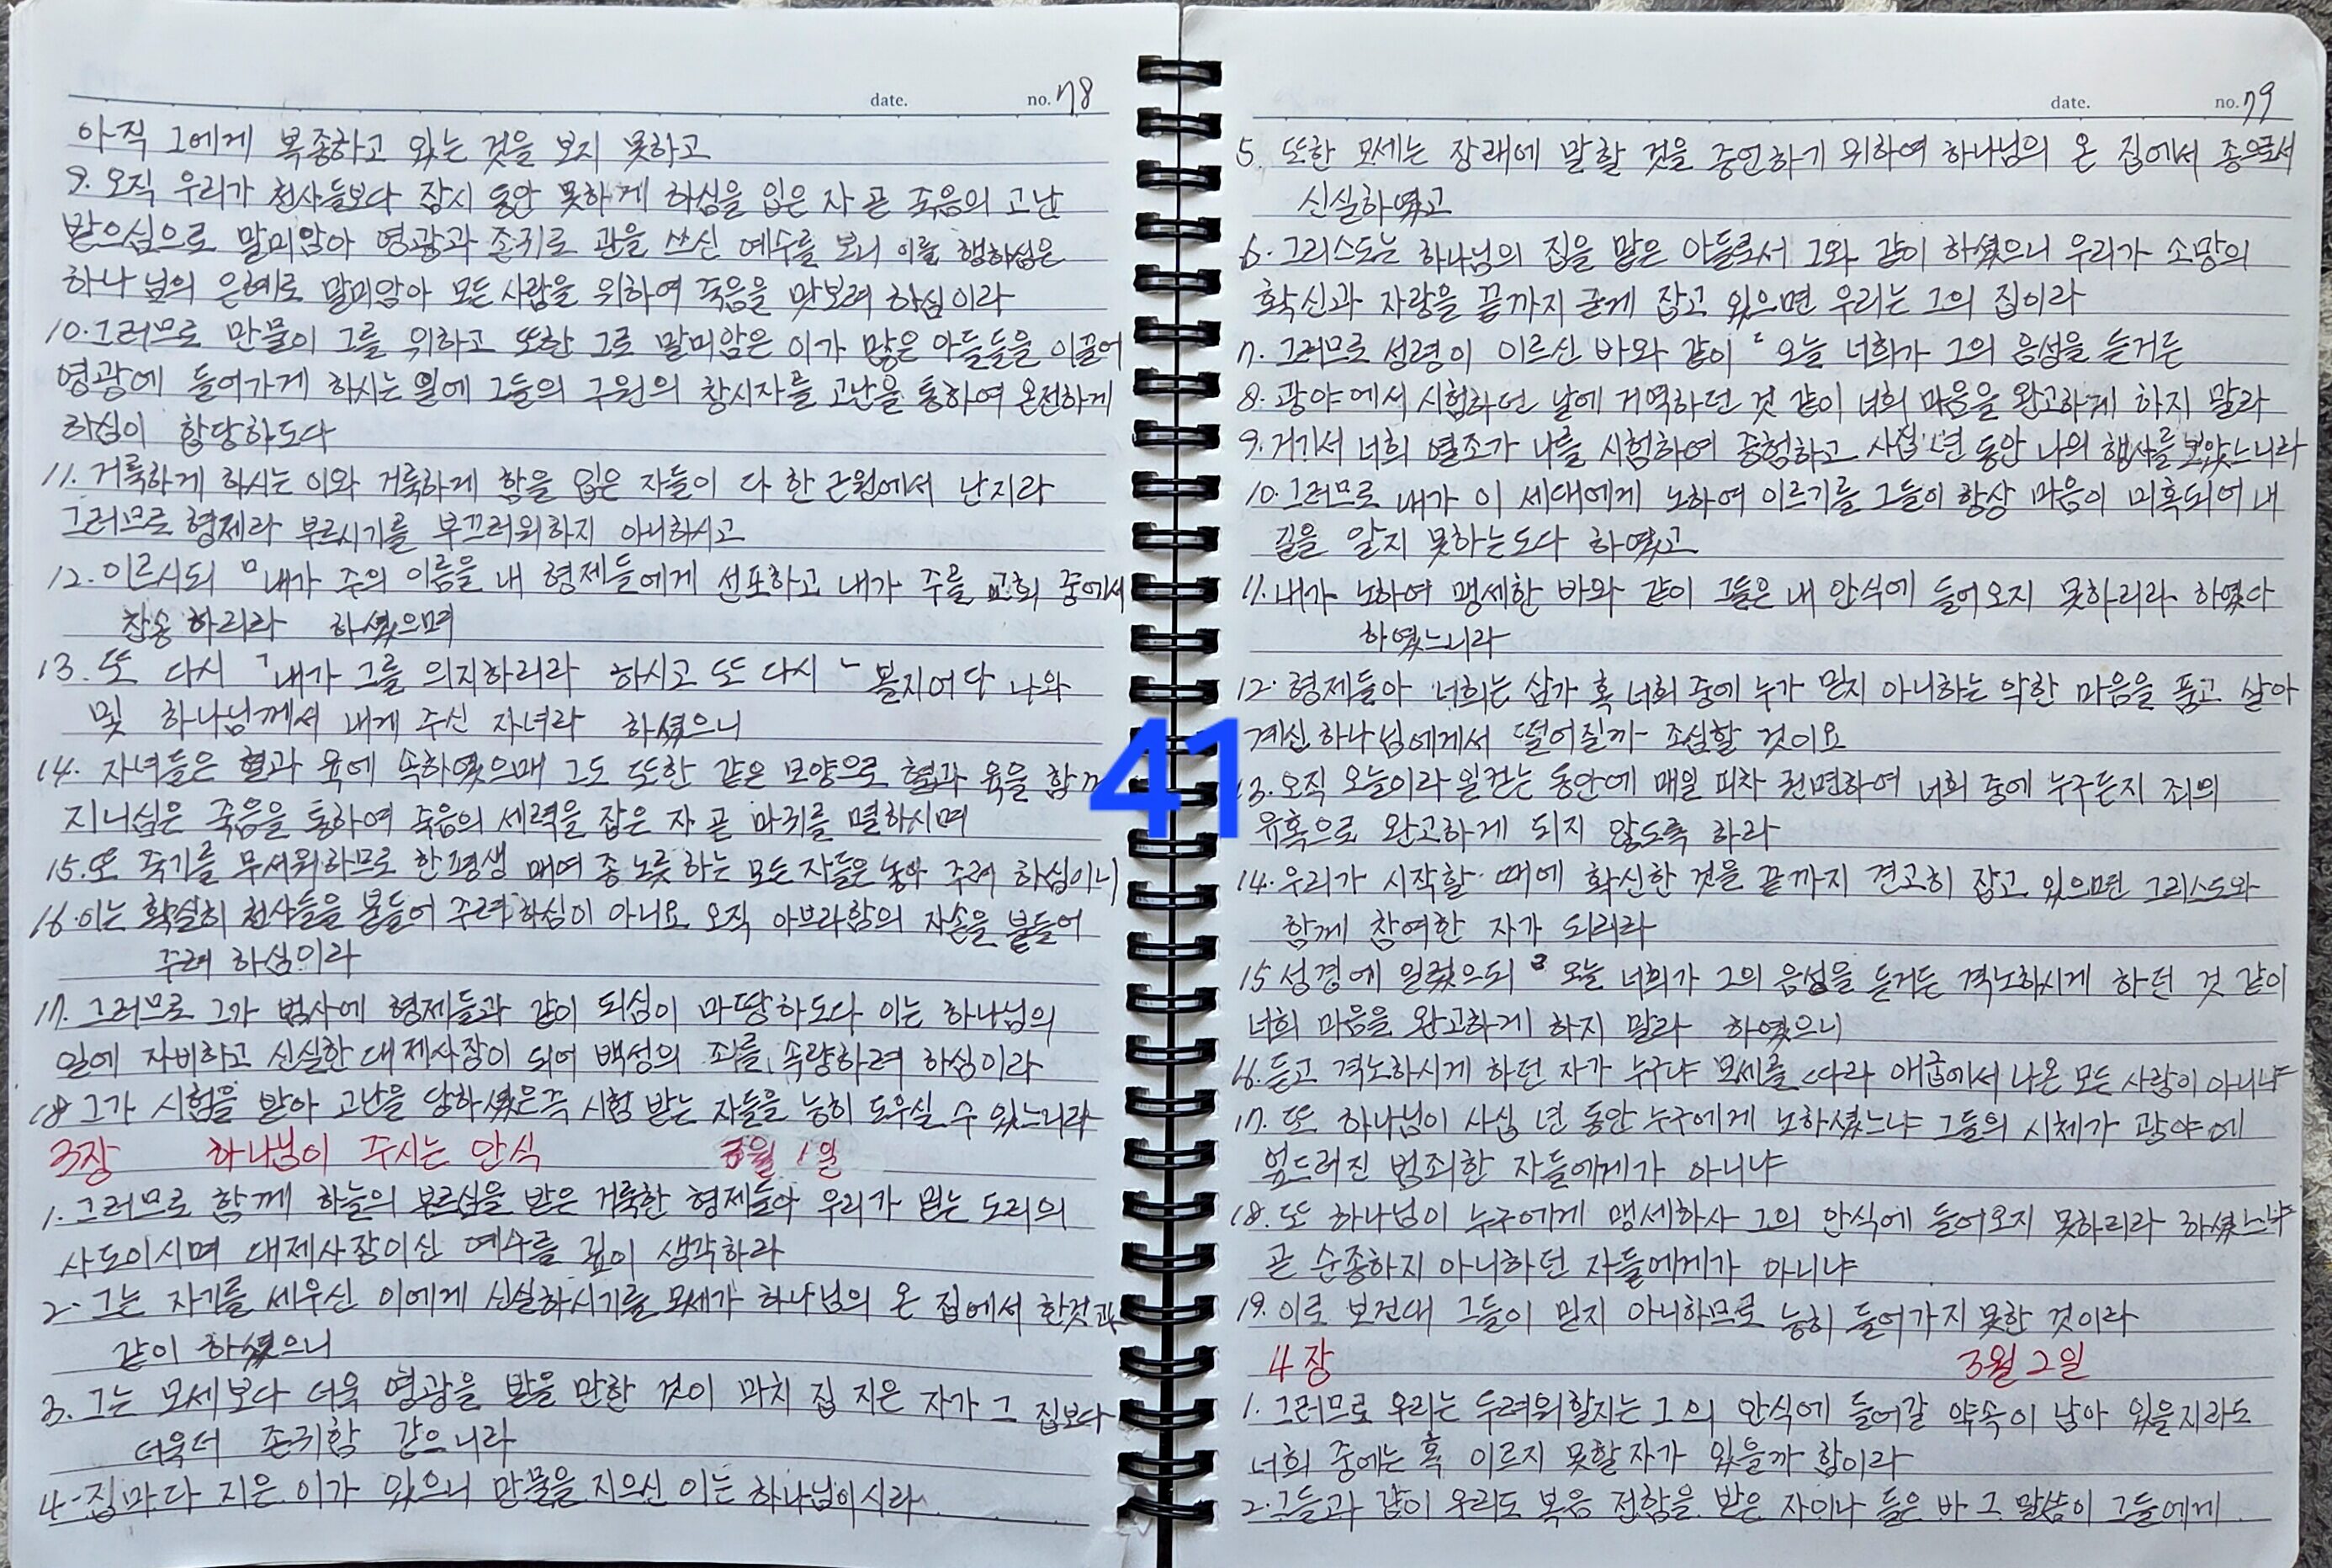 date. no. 78
아직 그에게 복종하고 있는 것을 보지 못하고
9. 오직 우리가 천사들보다 잠시 동안 못하게 하심을 입은 자 곧 죽음의 고난
받으심으로 말미암아 영광과 존귀로 관을 쓰신 예수를 보니 이를 행하심은
하나님의 은혜로 말미암아 모든 사람을 위하여 죽음을 맛보려 하심이라
10. 그러므로 만물이 그를 위하고 또한 그로 말미암은 이가 많은 아들들을 이끌어
영광에 들어가게 하시는 일에 그들의 구원의 창시자를 고난을 통하여 온전하게
하심이 합당하도다
11. 거룩하게 하시는 이와 거룩하게 함을 입은 자들이 다 한 근원에서 난지라
그러므로 형제라 부르시기를 부끄러워하지 아니하시고
12. 이르시되 "내가 주의 이름을 내 형제들에게 선포하고 내가 주를 교회 중에서
찬송 하리라 하셨으며
13. 또 다시 「내가 그를 의지하리라 하시고 또 다시 「볼지어다 나와
및 하나님께서 내게 주신 자녀라 하셨으니
14. 자녀들은 혈과 육에 속하였으매 그도 또한 같은 모양으로 혈과 육을 함께
지니심은 죽음을 통하여 죽음의 세력을 잡은 자 곧 마귀를 멸하시며
15. 또 죽기를 무서워하므로 한평생 매여 종 노릇 하는 모든 자들은 놓아 주려 하심이니
16 이는 확실히 천사들을 붙들어 주려 하심이 아니요 오직 아브라함의 자손을 붙들어
주려 하심이라
17. 그러므로 그가 범사에 형제들과 같이 되심이 마땅하도다 이는 하나님의
일에 자비하고 신실한 대제사장이 되어 백성의 죄를 속량하려 하심이라
18 그가 시험을 받아 고난을 당하셨은즉 시험 받는 자들을 능히 도우실 수 있느니라
3장 하나님이 주시는 안식 3월 1일
1. 그러므로 함께 하늘의 부르심을 받은 거룩한 형제들아 우리가 믿는 도리의
사도이시며 대제사장이신 예수를 깊이 생각하라
2. 그는 자기를 세우신 이에게 신실하시기를 모세가 하나님의 온 집에서 한것과
같이 하셨으니
3. 그는 모세보다 더욱 영광을 받을 만한 것이 마치 집 지은 자가 그 집보다
더욱더 존귀함 같으니라
4. 집마다 지은 이가 있으니 만물을 지으신 이는 하나님이시라
41
date. no. 79
5. 또한 모세는 장래에 말할 것을 증언하기 위하여 하나님의 온 집에서 종으로서
신실하였고
6. 그리스도는 하나님의 집을 맡은 아들로서 그와 같이 하셨으니 우리가 소망의
확신과 자랑을 끝까지 굳게 잡고 있으면 우리는 그의 집이라
7. 그러므로 성령이 이르신 바와 같이 "오늘 너희가 그의 음성을 듣거든
8. 광야에서 시험하던 날에 거역하던 것 같이 너희 마음을 완고하게 하지 말라
9. 거기서 너희 열조가 나를 시험하여 증험하고 사십 년 동안 나의 행사를 보았느니라
10. 그러므로 내가 이 세대에게 노하여 이르기를 그들이 항상 마음이 미혹되어 내
길을 알지 못하는도다 하였고
11. 내가 노하여 맹세한 바와 같이 그들은 내 안식에 들어오지 못하리라 하였다
하였느니라
12. 형제들아 너희는 삼가 혹 너희 중에 누가 믿지 아니하는 악한 마음을 품고 살아
계신 하나님에게서 떨어질까 조심할 것이요
13. 오직 오늘이라 일컫는 동안에 매일 피차 권면하여 너희 중에 누구든지 죄의
유혹으로 완고하게 되지 않도록 하라
14. 우리가 시작할 때에 확신한 것을 끝까지 견고히 잡고 있으면 그리스도와
함께 참여한 자가 되리라
15 성경에 일렀으되 "오늘 너희가 그의 음성을 듣거든 격노하시게 하던 것 같이
너희 마음을 완고하게 하지 말라 하였으니
16. 듣고 격노하시게 하던 자가 누구냐 모세를 따라 애굽에서 나온 모든 사람이 아니냐
17. 또 하나님이 사십 년 동안 누구에게 노하셨느냐 그들의 시체가 광야에
엎드러진 범죄한 자들에게가 아니냐
18. 또 하나님이 누구에게 맹세하사 그의 안식에 들어오지 못하리라 하셨느냐
곧 순종하지 아니하던 자들에게가 아니냐
19. 이로 보건대 그들이 믿지 아니하므로 능히 들어가지 못한 것이라
4장 3월 2일
1. 그러므로 우리는 두려워할지는 그의 안식에 들어갈 약속이 남아 있을지라도
너희 중에는 혹 이르지 못할 자가 있을까 함이라
2. 그들과 같이 우리도 복음 전함을 받은 자이나 들은 바 그 말씀이 그들에게